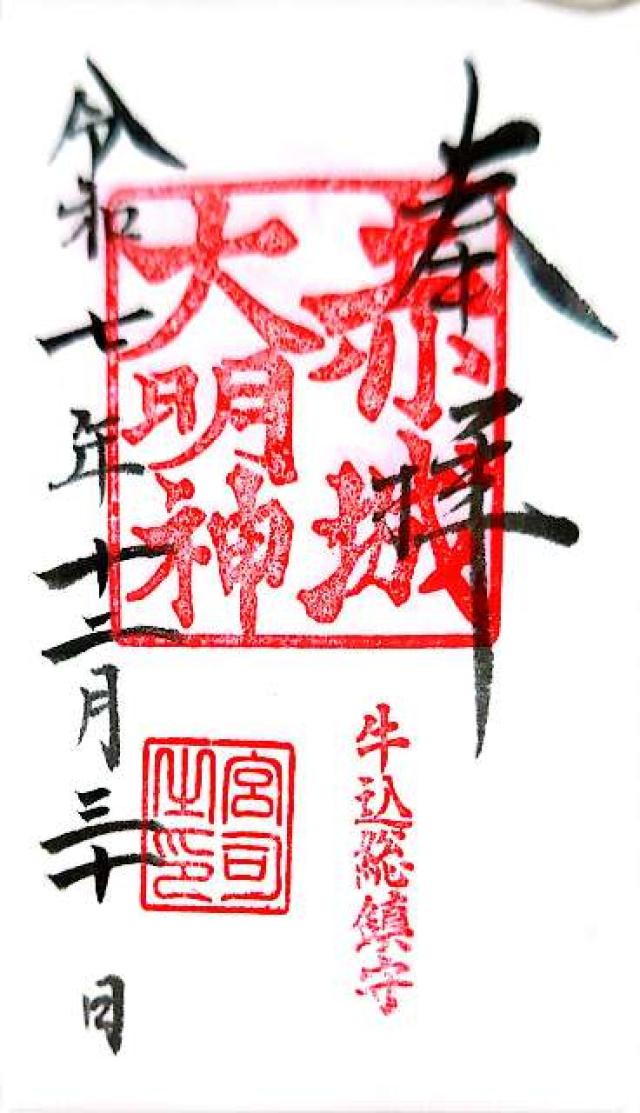 奉拝
赤城
大明神
牛込総鎮守
宮司
之印
令和七年十二月三十日